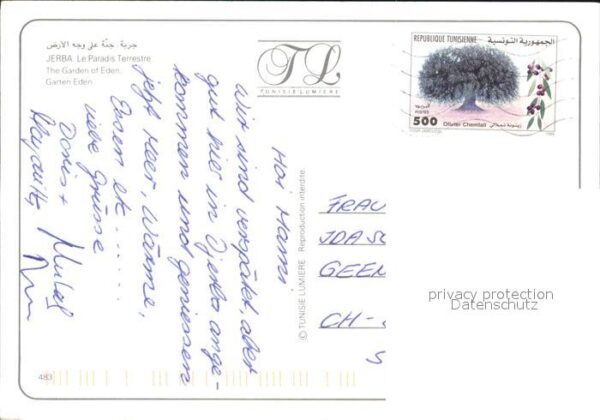 جربة. جنّة على وجه الأرض
JERBA. Le Paradis Terrestre.
The Garden of Eden.
Garten Eden.
TL
TUNISIE LUMIERE
REPUBLIQUE TUNISIENNE الجمهورية التونسية
500
Olivier Chemlali زيتونة شملالي
Hoi Mami
Wir sind verspätet, aber
gut hier in Djerba ange-
kommen und geniessen
jetzt Meer, Wärme,
Essen etc......
Liebe Grüsse
Doris +
© TUNISIE LUMIERE Reproduction interdite
FRAU
IDA
GEEN
CH-
483
privacy protection
Datenschutz